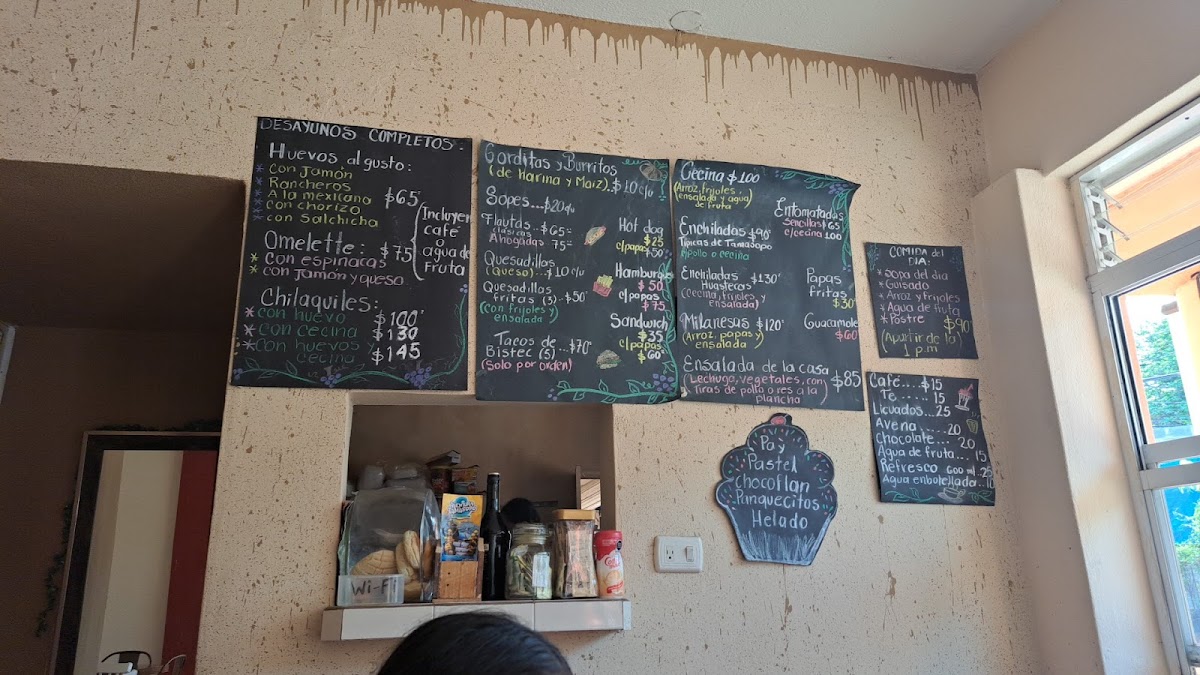 DESAYUNOS COMPLETOS:
Huevos al gusto:
* con Jamón
* Rancheros
* A la mexicana $65
* con chorizo
* con salchicha
Omelette: $75
* con espinacas
* con Jamón y queso
(Incluyen
café
o
agua de
Fruta
Chilaquiles:
* con huevo $100
* con cecina $130
* con huevos y $145
cecina
Gorditas y Burritos
(de Harina y Maiz). $10 c/u
Sopes...$20 c/u
Flautas
clásicas $65=
Ahogadas 75=
Quesadillas
(Queso)...$10 c/u
Quesadillas
fritas (3)-$50
(con frijoles y
ensalada)
Tacos de
Bistec (5)...$70
(Solo por orden)
Hot dog
$25
c/papas $50
Hamburguesa
$50
c/papas
$75
Sandwich
$35
c/papas
$60
Cecina $100
(Arroz, frijoles,
ensalada y agua
de fruta)
Enchiladas $90
Tipicas de Tamasopo
Pollo o cecina
Enchiladas $130
Huastecas
(cecina, frijoles y
ensalada)
Milanesas $120
(Arroz, papas y
ensalada
Ensalada de la casa
(Lechuga, vegetales, con $85
Tiras de pollo o res a la
plancha
Entomatadas
Sencillas $65
c/cecina 100
Papas
fritas
$30
Guacamole
$60
COMIDA del
DÍA:
* Sopa del dia
* Guisado
* Arroz y frijoles
* Agua de fruta
* Postre $90
(Apartir de la
1 p.m
Café....$15
Te.....15
Licuados...25
Avena.....20
Chocolate...20
Agua de fruta...15
Refresco 600 ml..25
Agua enbotellada..10
Pay
Pastel
Chocoflan
Panquecitos
Helado
Wi-Fi